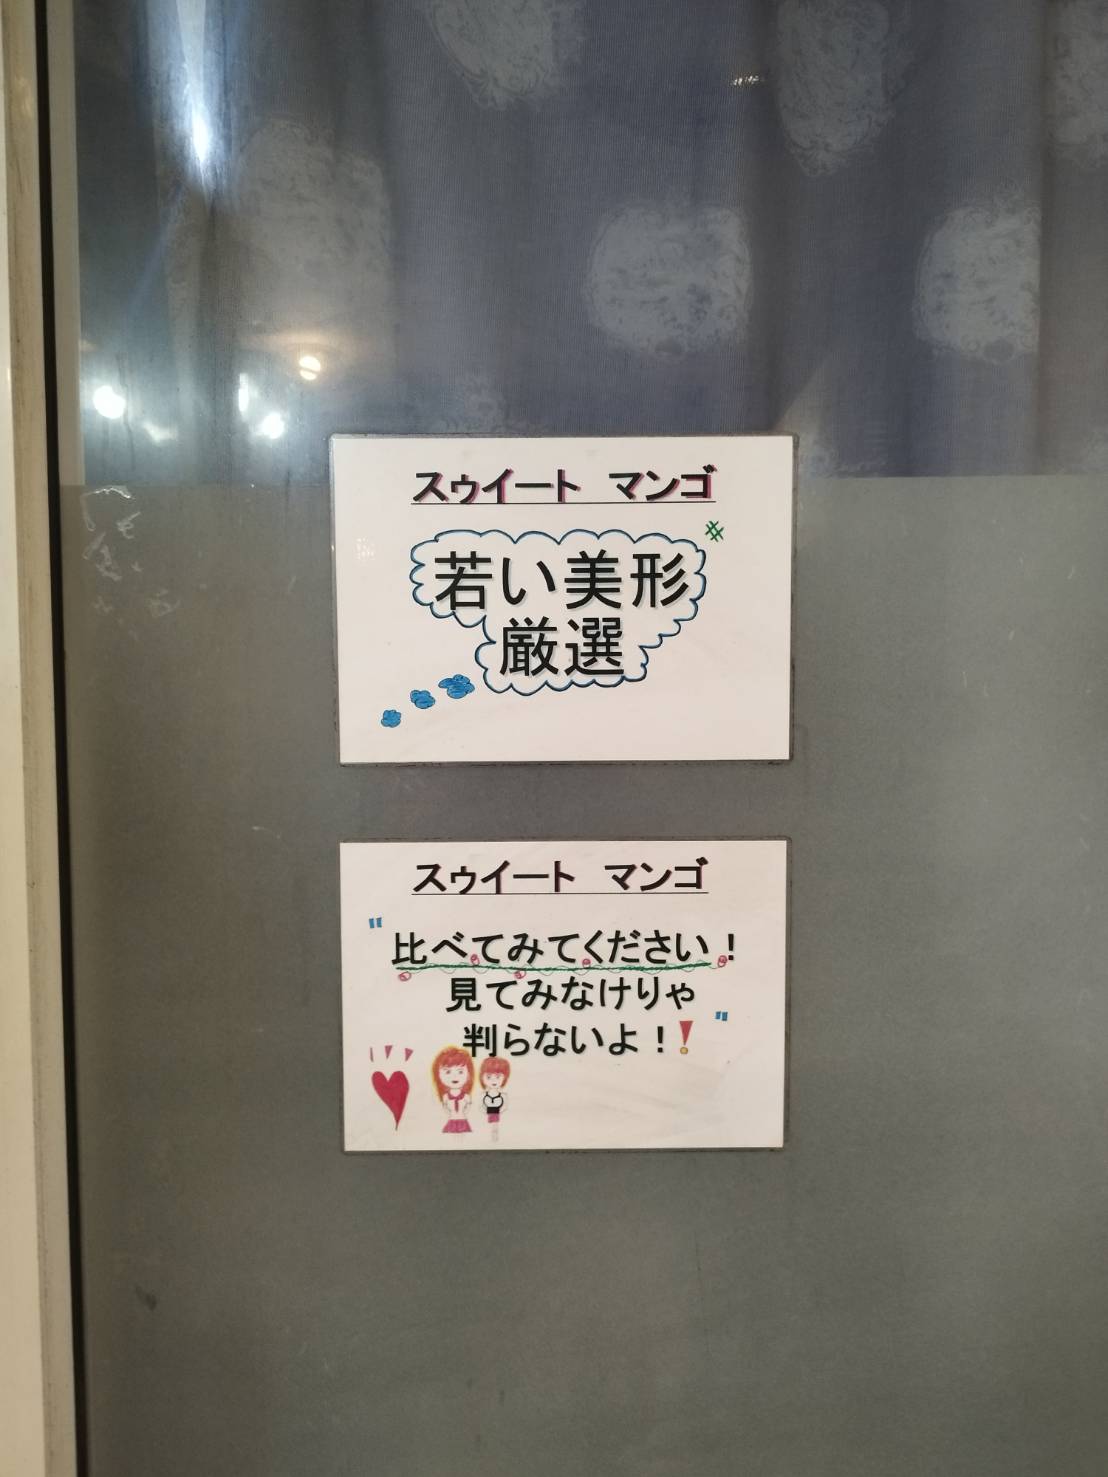 スゥイート マンゴ
若い美形
厳選
スゥイート マンゴ
"比べてみてください！
見てみなけりゃ
判らないよ！！"